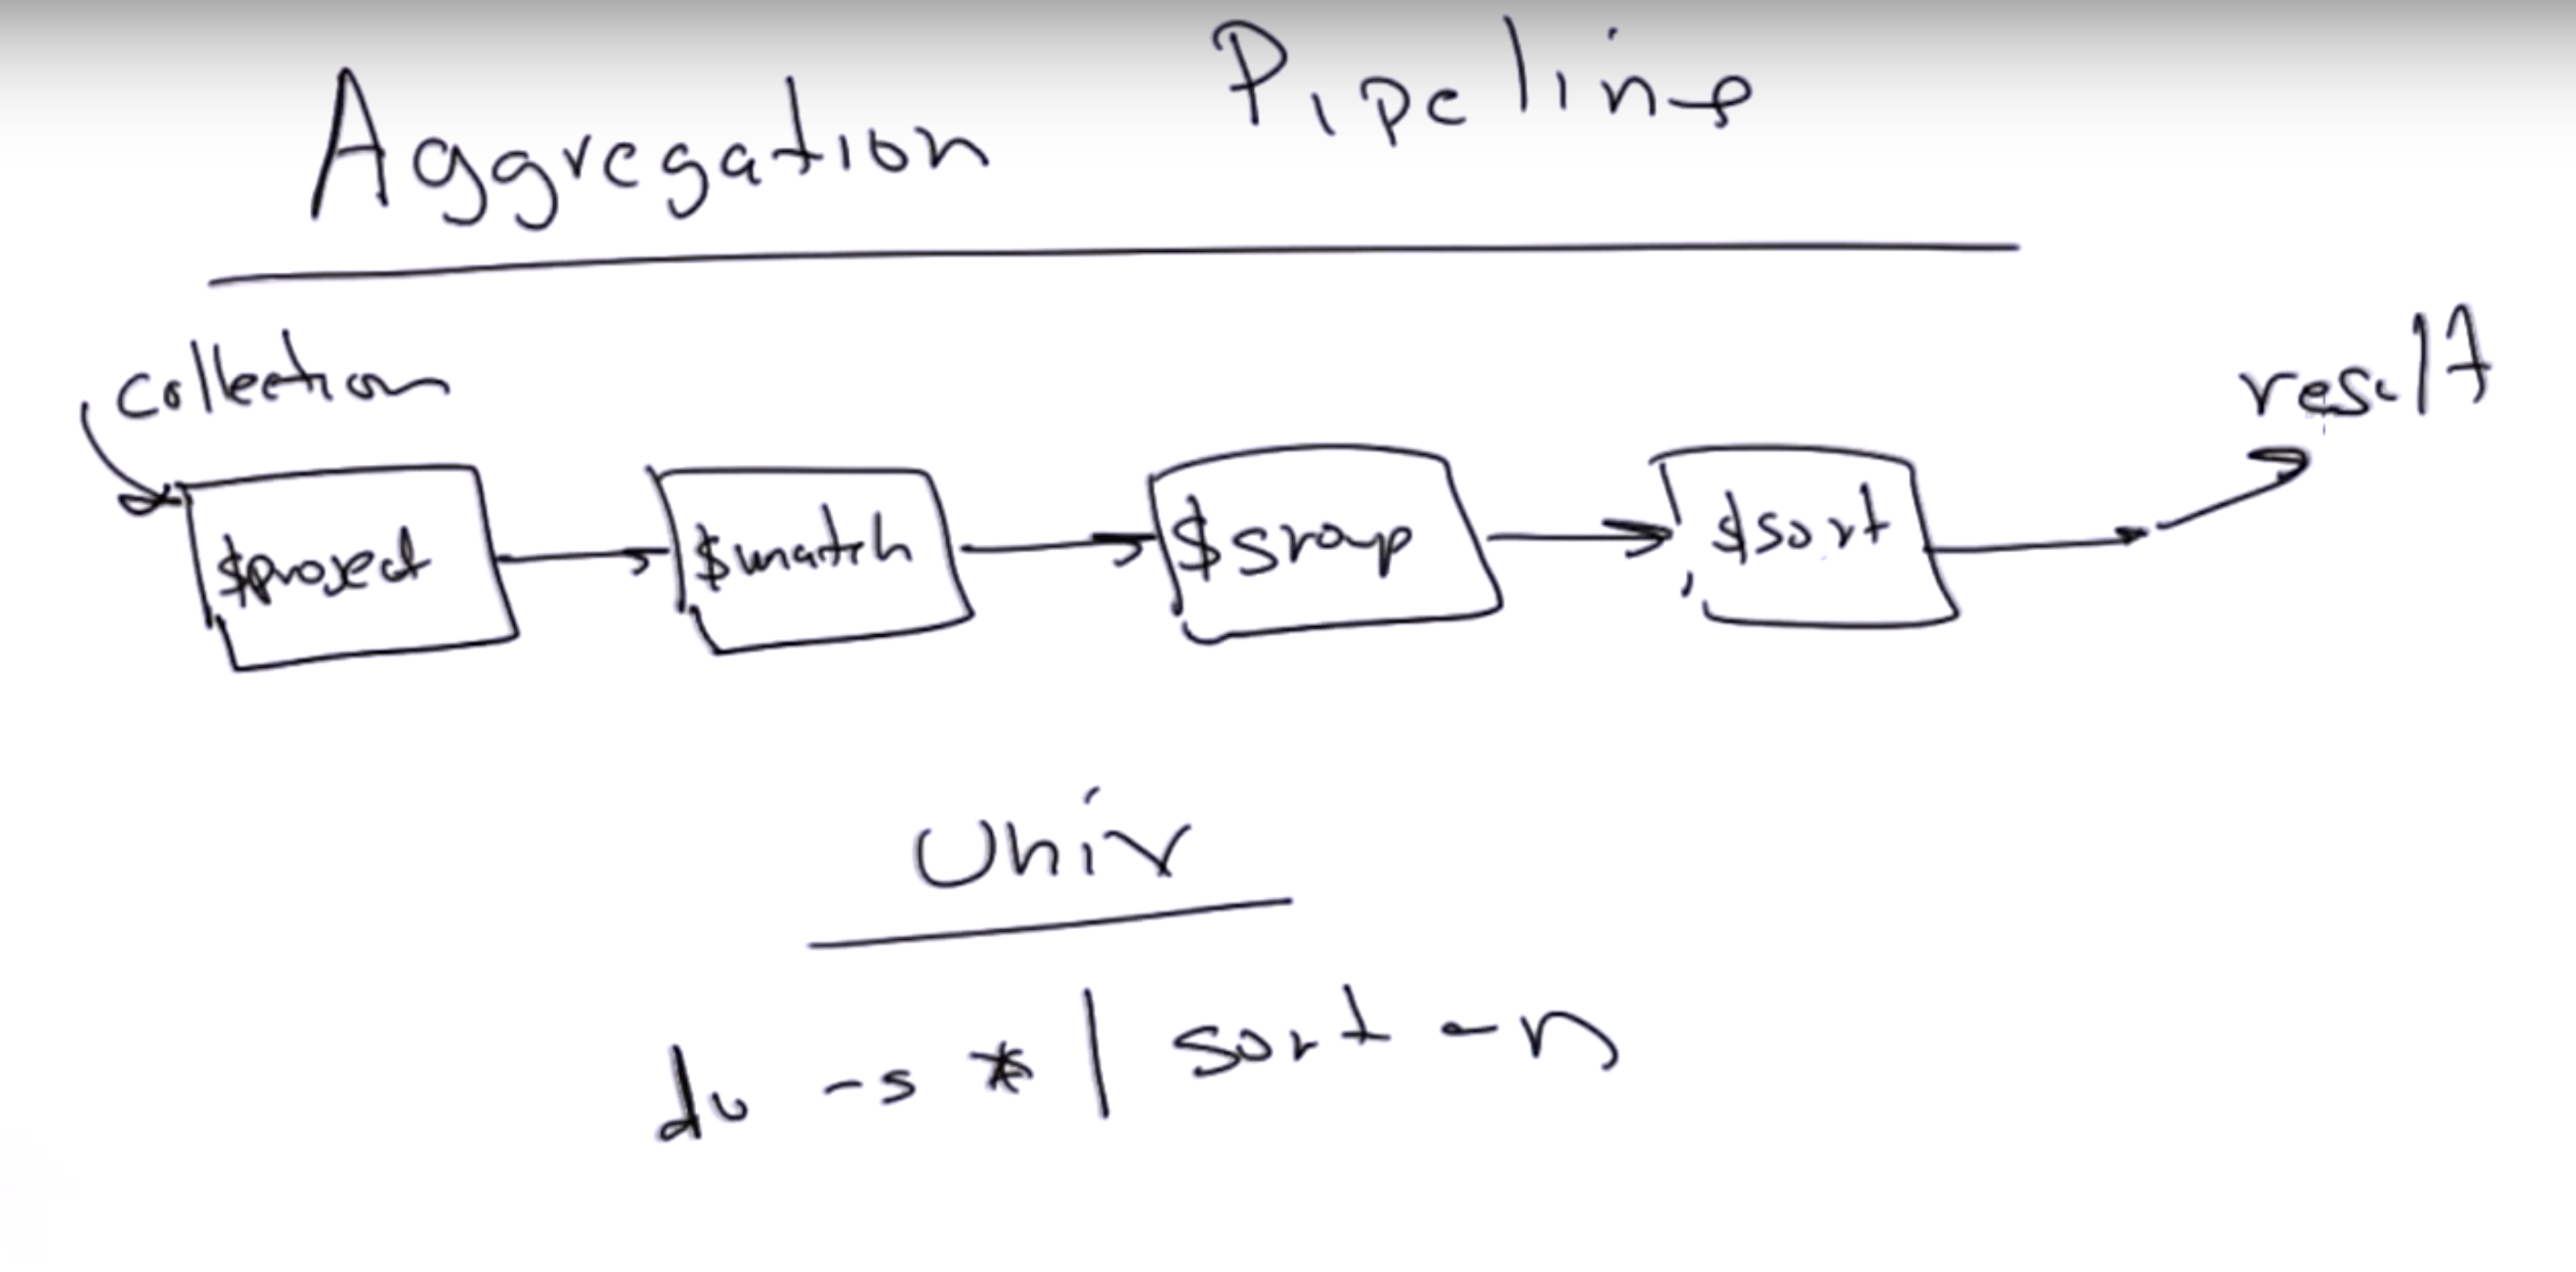 Aggregation Pipeline
collection
result
$project $match $group $sort
Unix
du -s * | sort -n